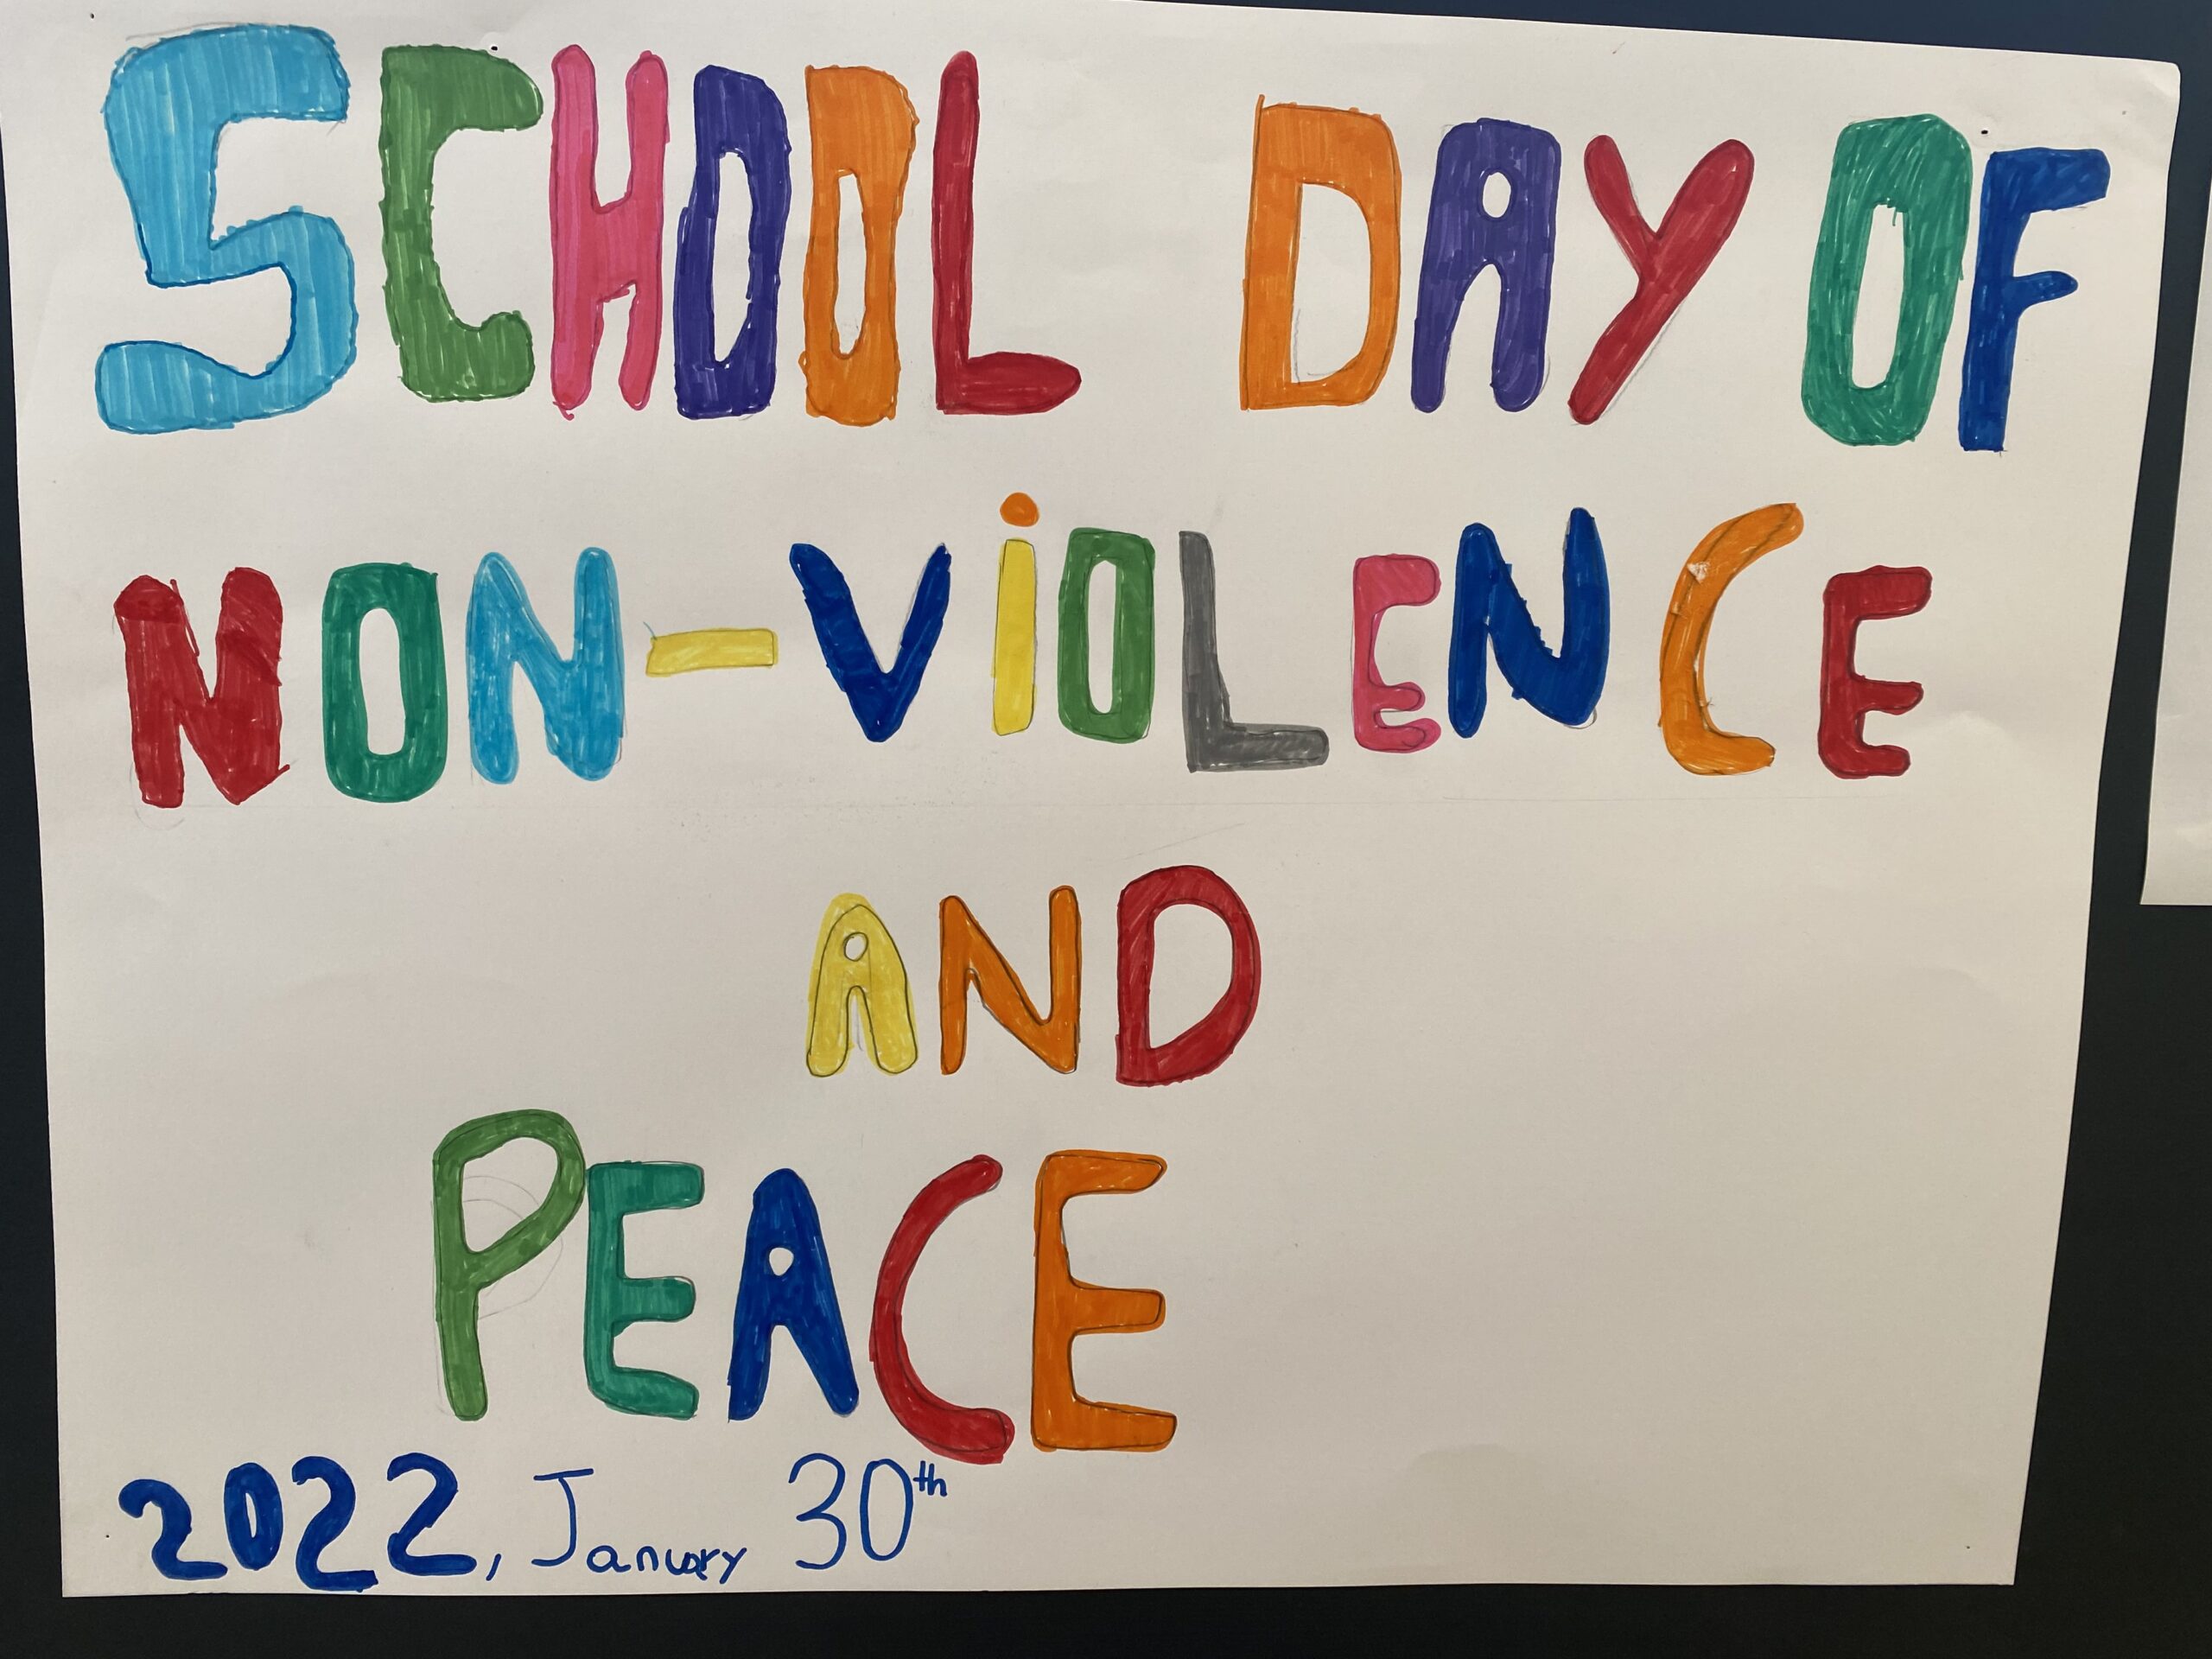 SCHOOL DAY OF
NON-ViOLENCE
AND
PEACE
2022, January 30th